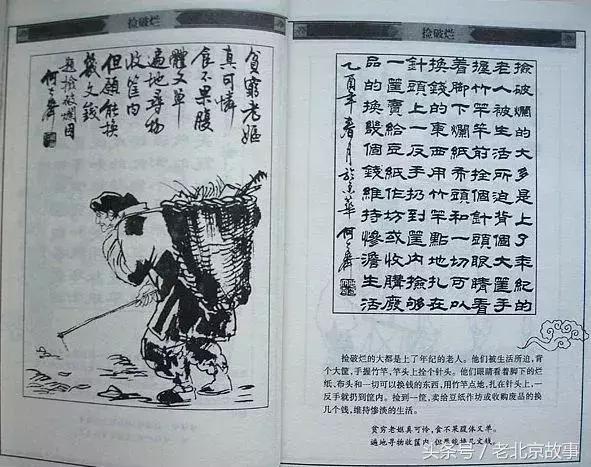 捡破烂
貧窮老嫗
真可憐
食不果腹
體又單
遍地尋物
收筐内
但願能換
幾文錢
題撿破爛圖
何大齊
捡破烂
撿破爛的大多是上了年紀的
老人被生活所迫背個大筐手
握竹竿竿前拴個針頭眼睛看
着脚下爛紙布頭和一切可以
換錢的東西用竹竿點地扎在
針頭上一反手扔到筐内撿够
一筐賣給豆紙作坊或收購廢
品的換幾個錢維持慘澹生活
乙酉年春月於京華何大齊
捡破烂的大都是上了年纪的老人。他们被生活所迫,背
个大筐,手握竹竿,竿头上拴个针头。他们眼睛看着脚下的烂
纸、布头和一切可以换钱的东西,用竹竿点地,扎在针头上,一
反手就扔到筐内。捡到一筐,卖给豆纸作坊或收购废品的换
几个钱,维持惨淡的生活。
贫穷老妪真可怜,食不果腹体又单。
遍地寻物收筐内,但愿能换几文钱。
头条号/老北京故事